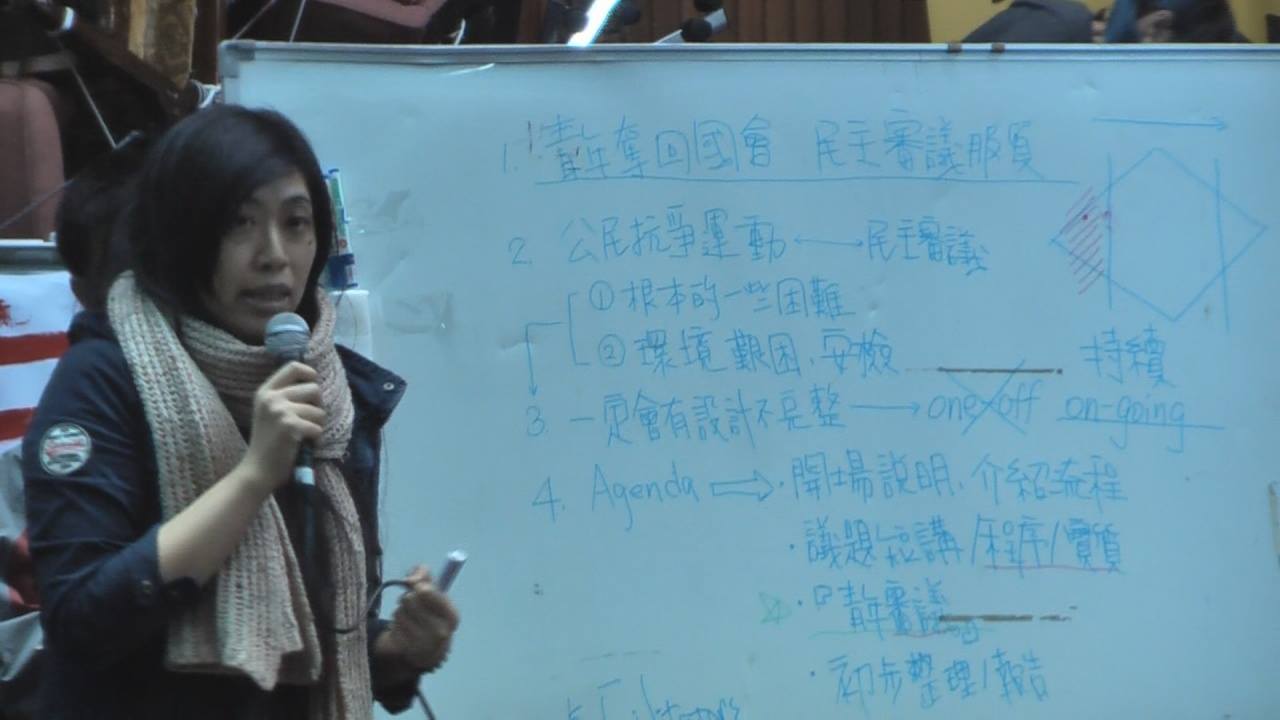 1. 青年奪回國會 民主審議服貿
2. 公民抗爭運動 ⟷ 民主審議
① 根本的一些困難
② 環境艱困、安檢
持續
3. 一定會有設計不完整 → one off on-going
4. Agenda ⇒ · 開場說明、介紹流程
· 議題短講/程序/價質
· 『青年審議』
· 初步整理/報告